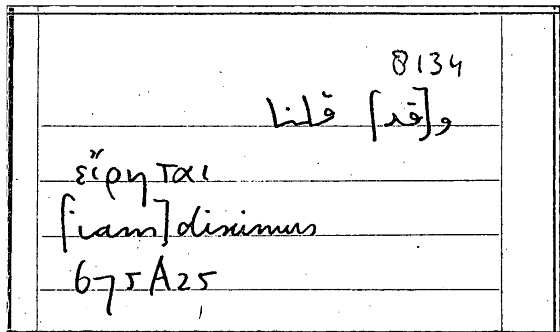 8134
و[قد] قلنا
εἴρηται
[iam] diximus
675A25